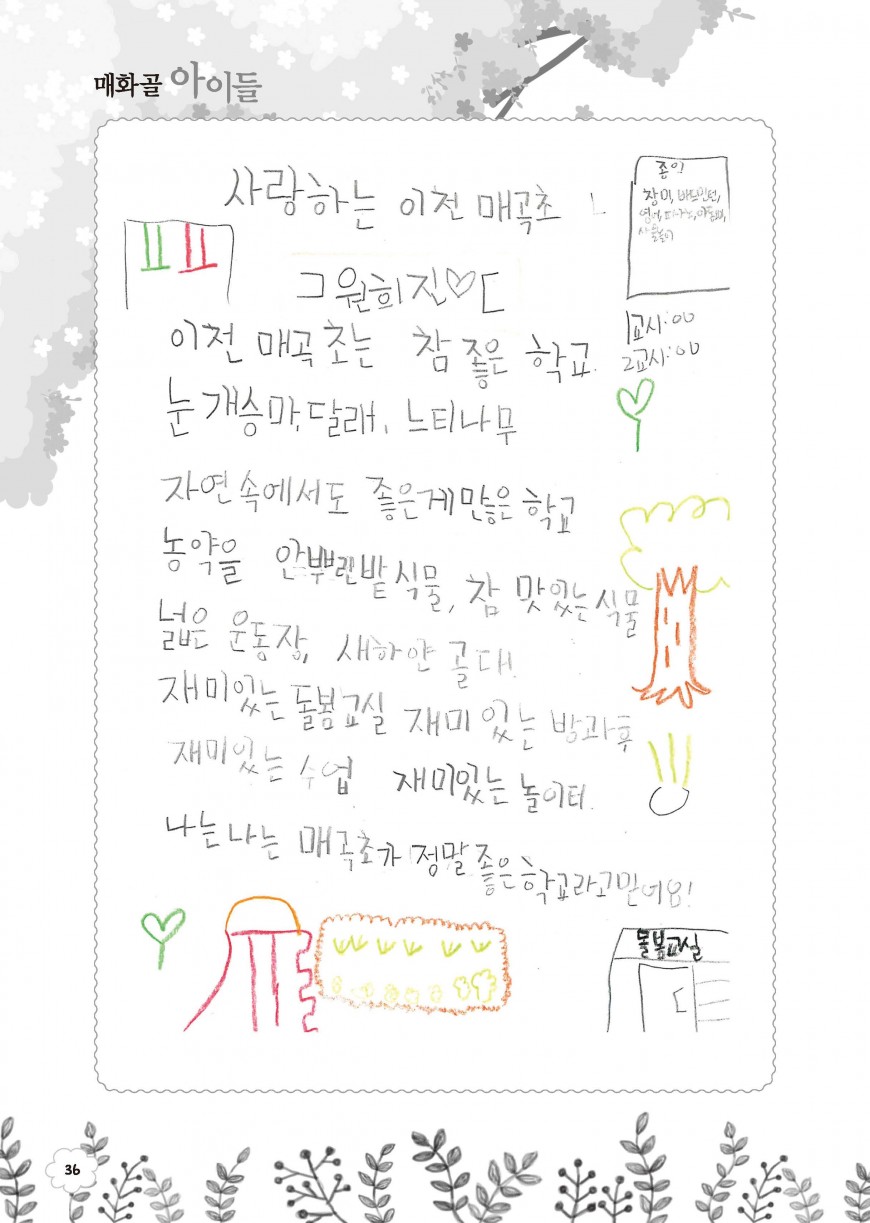 매화골 아이들
사랑하는 이천 매곡초
원희진♡
이천 매곡초는 참 좋은 학교.
눈개승마, 달래, 느티나무
자연속에서도 좋은게많은 학교
농약을 안뿌린밭 식물, 참 맛있는 식물
넓은 운동장, 새하얀 골대.
재미있는 돌봄교실 재미있는 방과후
재미있는 수업 재미있는 놀이터.
나는나는 매곡초가 정말좋은학교라고믿어요!
1교시:00
2교시:00
돌봄교실
36